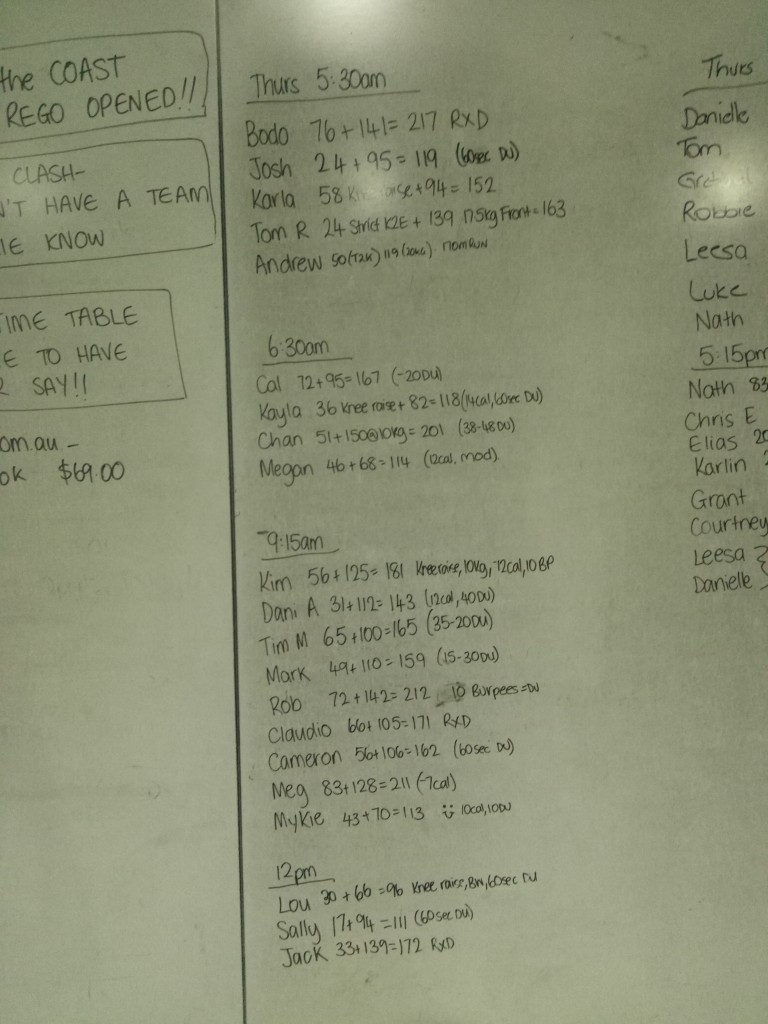 the COAST
REGO OPENED!!
CLASH-
N'T HAVE A TEAM
ME KNOW
TIME TABLE
E TO HAVE
R SAY!!
om.au -
ok $69.00
Thurs 5:30am
Bodo 76+141= 217 RXD
Josh 24+95=119 (60sec DU)
Karla 58 Knee raise+94=152
Tom R 24 Strict K2E + 139 17.5kg Front=163
Andrew 50(T2K) 119(20KG) 110m RUN
6:30am
Cal 72+95=167 (-20DU)
Kayla 36 knee raise+ 82=118(14cal,60sec DU)
Chan 51+150@10kg= 201 (38-48DU)
Megan 46+68=114 (12cal, mod)
9:15am
Kim 56+125= 181 Knee raise, 10kg, -12cal, 10BP
Dani A 31+112= 143 (12cal, 40DU)
Tim M 65+100=165 (35-20DU)
Mark 49+110= 159 (15-30DU)
Rob 72+142= 212 10 Burpees=DU
Claudio 66+105=171 RXD
Cameron 56+106=162 (60sec DU)
Meg 83+128=211 (-7cal)
Mykie 43+70=113 10cal,10DU
12pm
Lou 30+66=96 Knee raise, BW, 60sec DU
Sally 17+94=111 (60sec DU)
Jack 33+139=172 RXD
Thurs
Danielle
Tom
Robbie
Leesa
Luke
Nath
5:15pm
Nath 83
Chris E
Elias 20
Karlin
Grant
Courtney
Leesa
Danielle